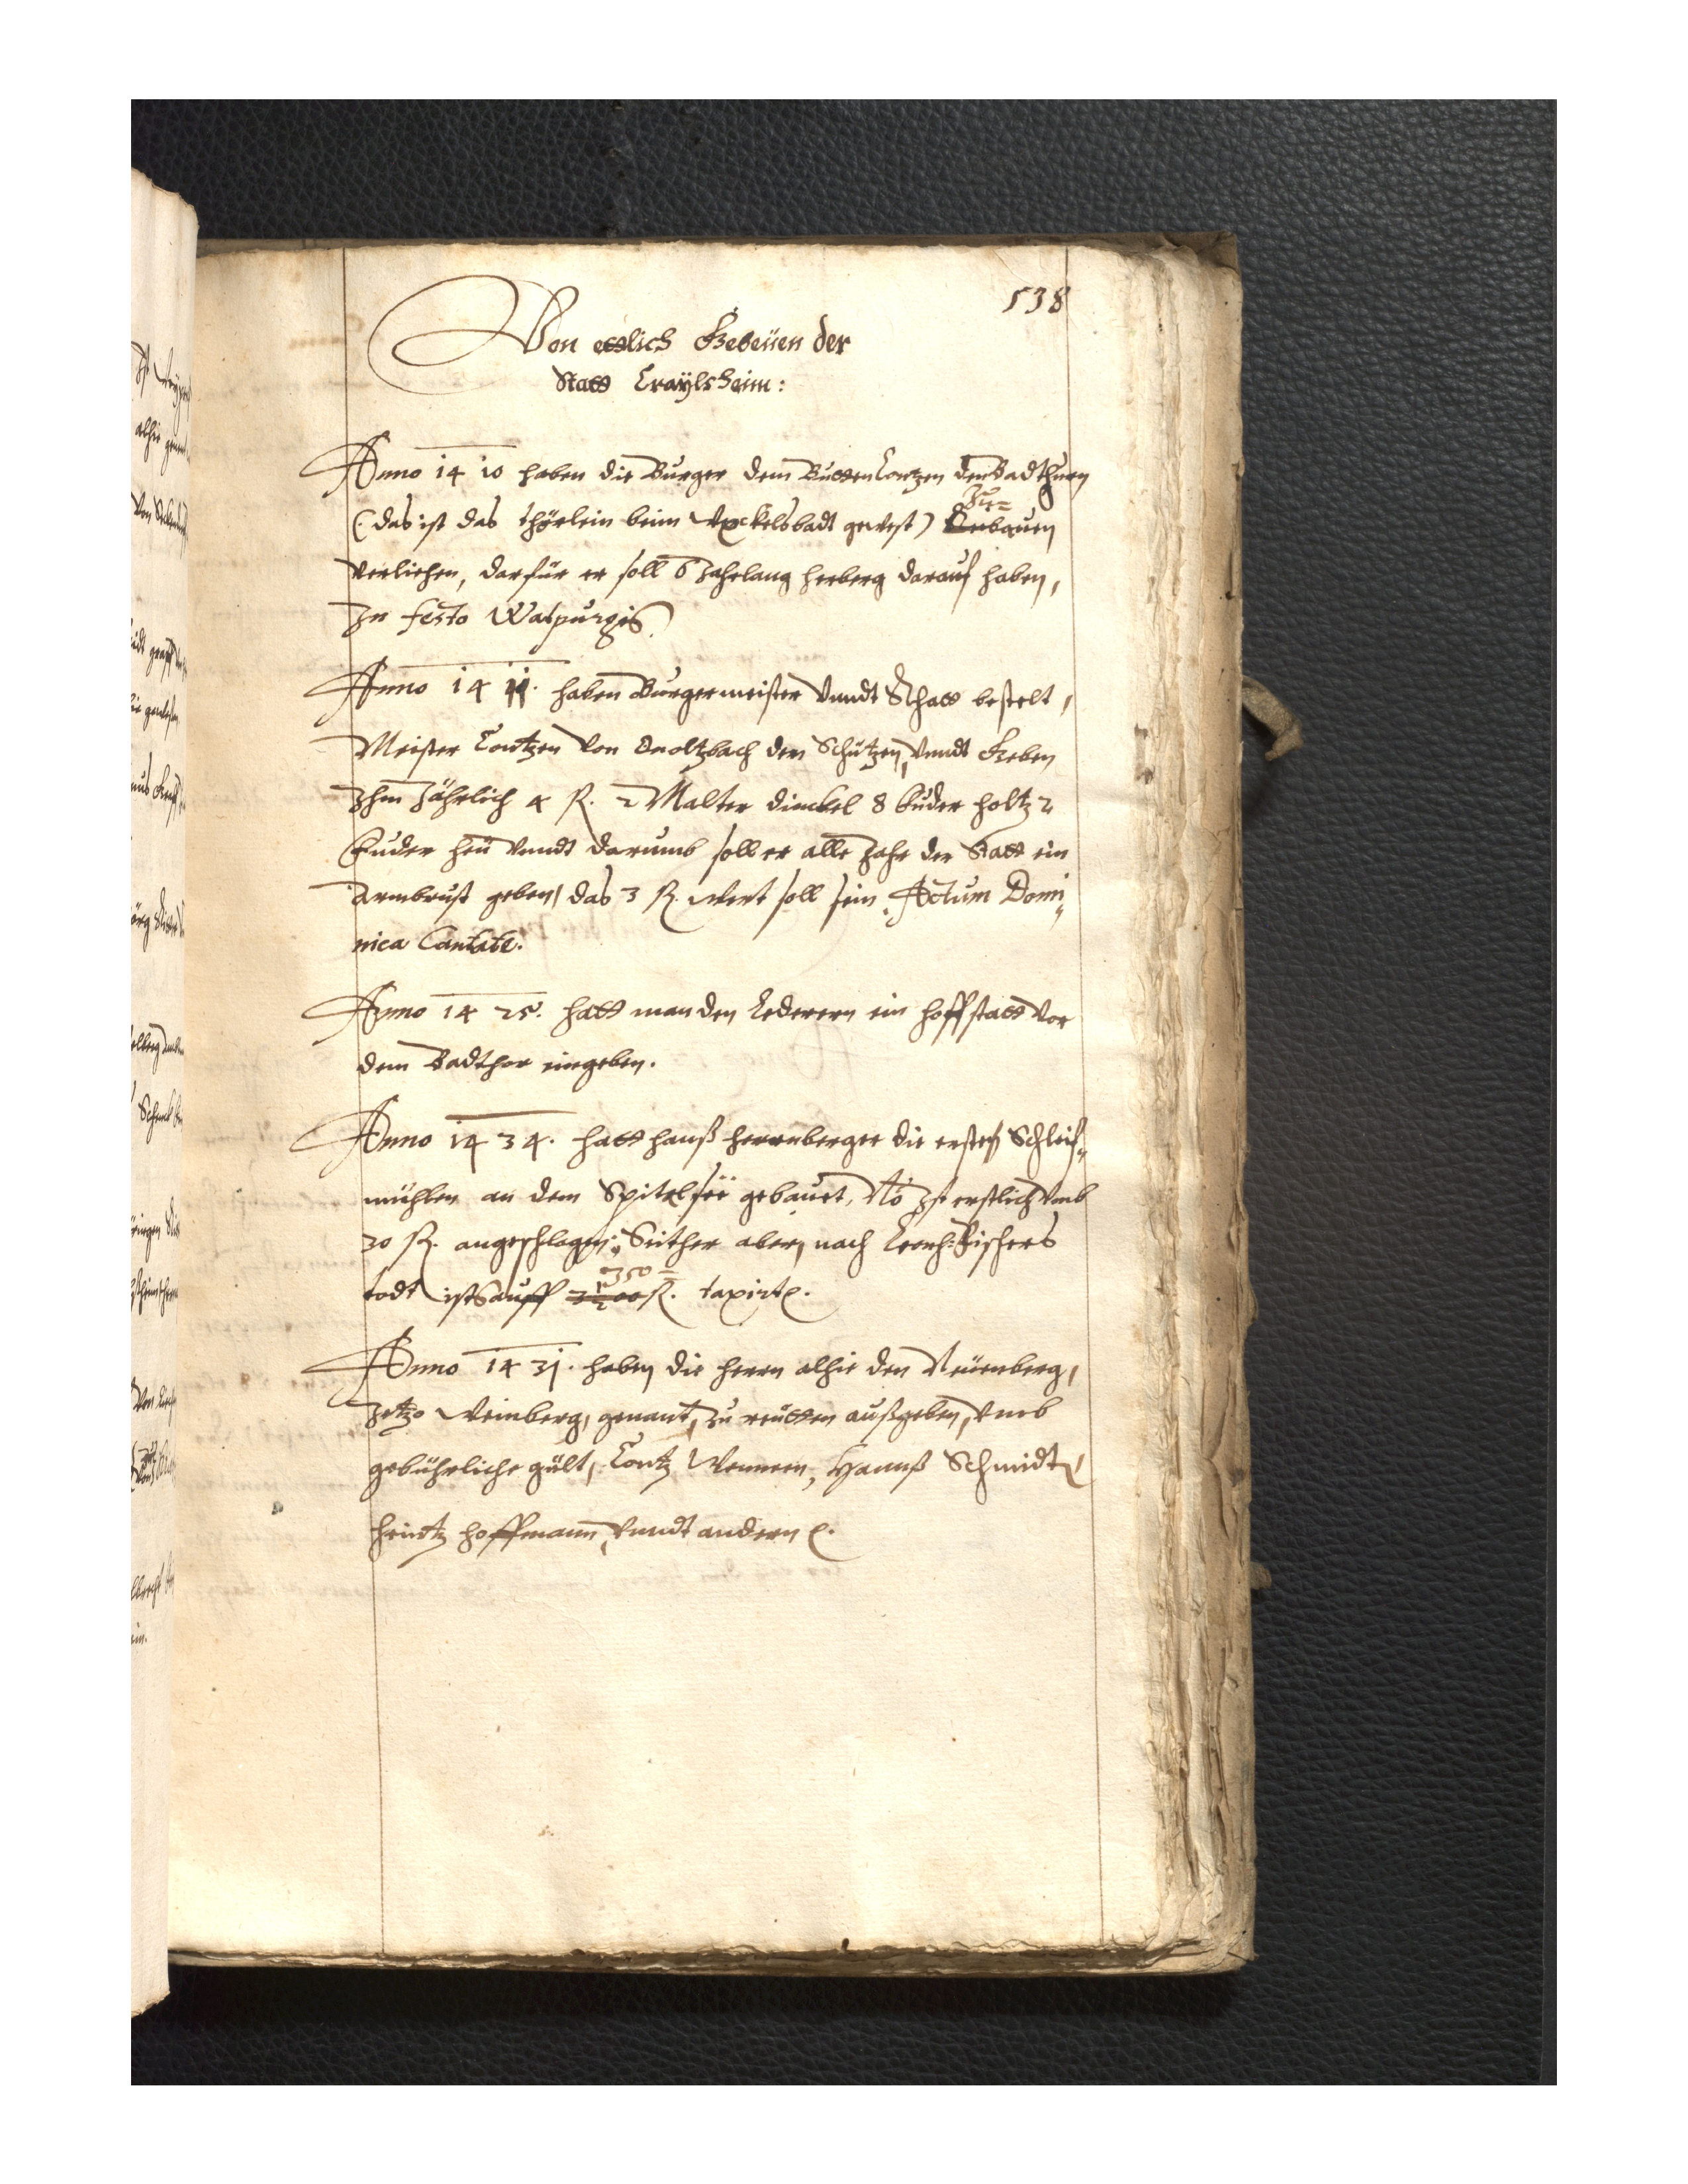 538
Von ettlich Gebeüen der
Statt Craÿlsheim:
Anno 14 10 haben die Burger dem Butten Contzen den Badthurn
zu=
(: das ist das thörlein beim badt gewest) bauen
verliehen, darfür er soll 6 Jahrlang herberg darauf haben,
In festo Walpurgis.
Anno 14 11. haben Burgermeister vnndt Rhatt bestelt,
Meister Contzen von Onoltzbach den Schützen, vnndt Geben
Ihm Jährlich 4 fl. 2 Malter dinckel 8 fuder holtz 2
fuder heü vnndt darumb soll er alle Jahr der Statt ein
Armbrust geben, das 3 fl. wert soll sein. Actum Domi„
nica Cantate.
Anno 14 25. hatt man den Lederern ein hoffstatt vor
dem Badthor eingeben.
Anno 14 34. hatt hanß herrnberger die ersten Schleif„
mühlen an dem Spitelseë gebauet, No ist erstlich vmb
30 fl. angeschlagen; Seither aber, nach Leonh: Fischers
350=
todt ists auff fl. taxirt.
Anno 14 31. haben die herrn alhie den Neüenberg,
Jetzo Weinberg, genant, zu reütten außgeben, vmb
gebührliche gült, Contz Wennern, Hannß Schmidt,
Heintz Hoffmann, vnndt andern.